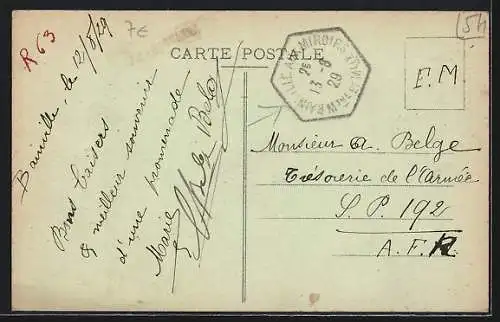 R 63
7€
54
CARTE POSTALE
F.M
26
13-8
29
Bainville, le 12/8/29
Bons baisers
& meilleur souvenir
d'une promenade
Marie
Monsieur A. Belge
Trésorerie de l'Armée
S.P. 192
A.F.R.